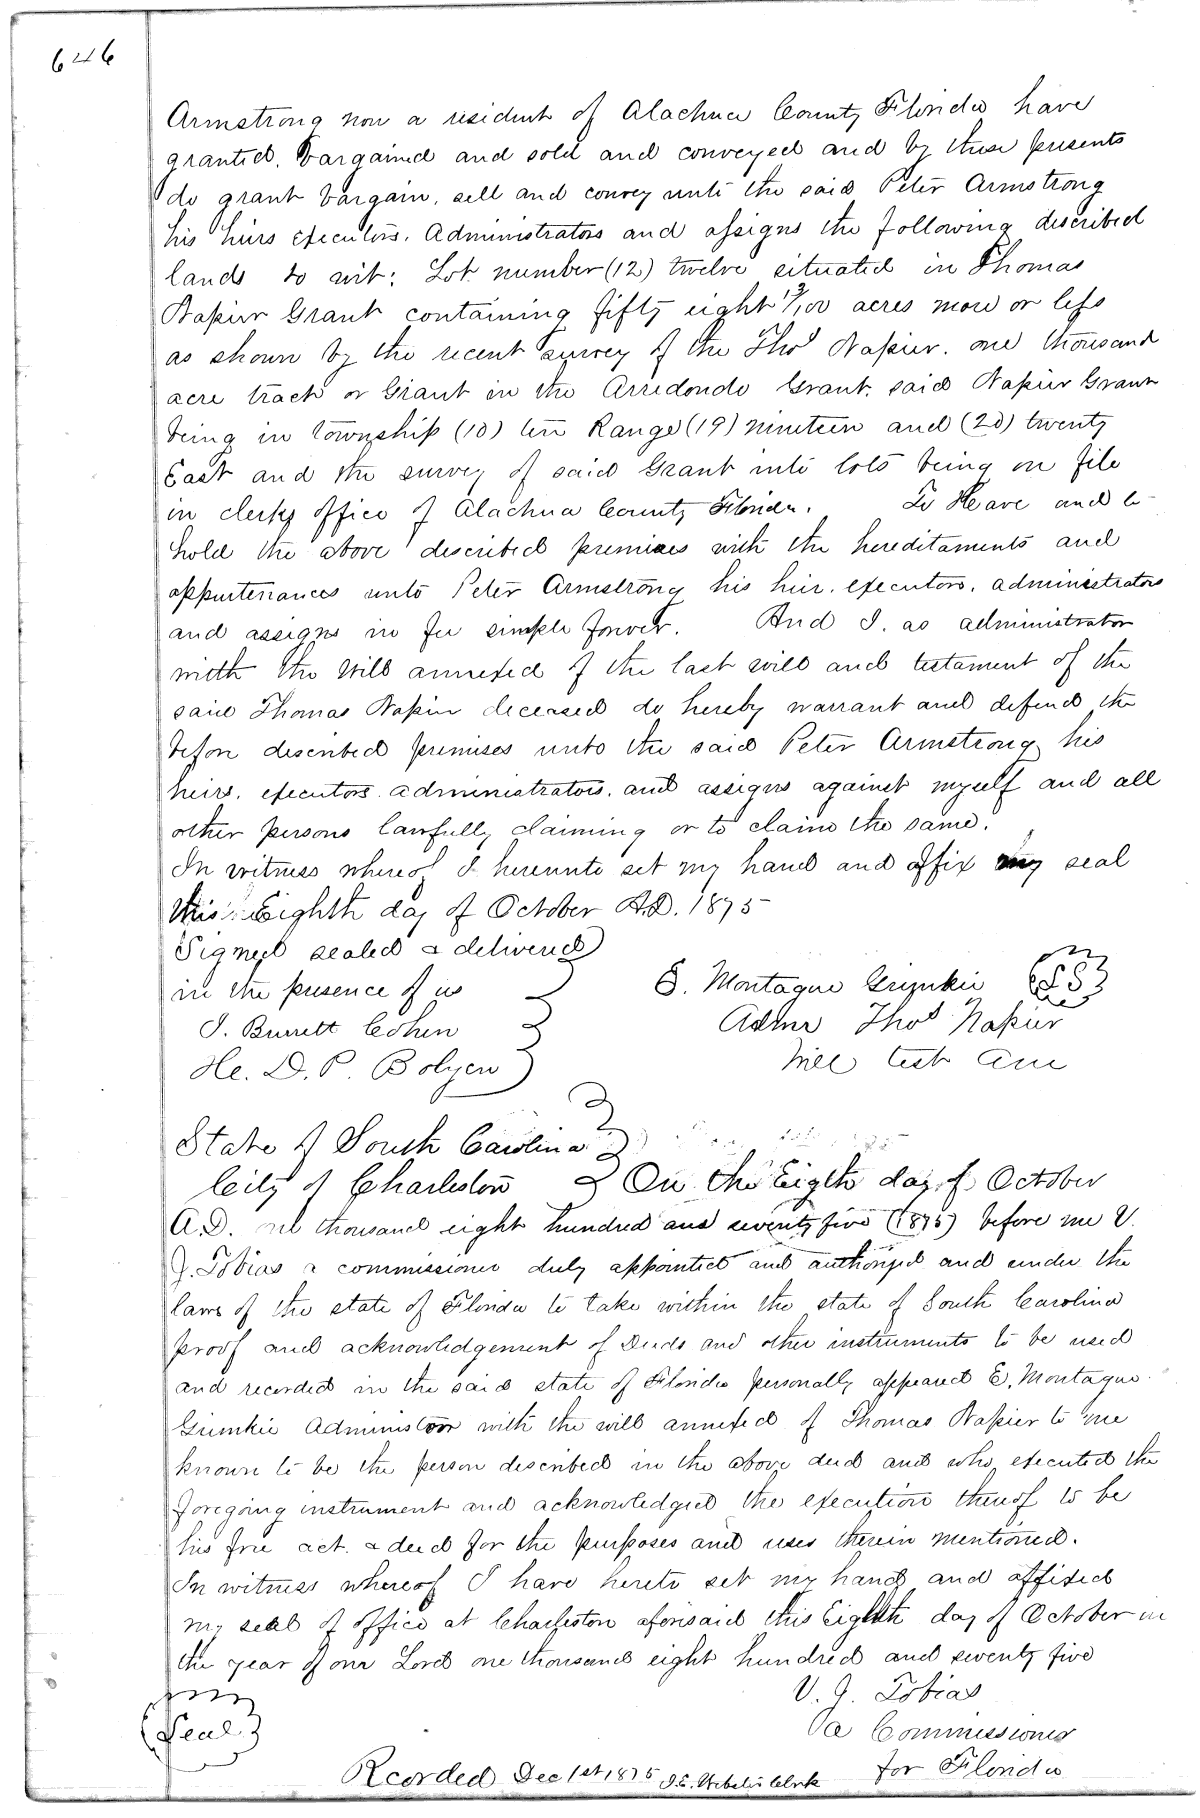 646
Armstrong now a resident of Alachua County Florida have
granted, bargained and sold and conveyed and by these presents
do grant bargain, sell and convey unto the said Peter Armstrong
his heirs executors, Administrators and assigns the following described
lands to wit: Lot number (12) twelve situated in Thomas
Napier Grant containing fifty eight /100 acres more or less
as shown by the recent survey of the Thos Napier. one thousand
acre tract or Grant in the Arredondo Grant. said Napier Grant
being in Township (10) ten Range (19) nineteen and (20) twenty
East and the survey of said Grant into lots being on file
in clerks office of Alachua County Florida. To Have and to
hold the above described premises with the hereditaments and
appurtenances unto Peter Armstrong his heir. executors, administrators
and assigns in fee simple forever. And I. as administrator
with the Will annexed of the last will and testament of the
said Thomas Napier deceased do hereby warrant and defend the
before described premises unto the said Peter Armstrong his
heirs, executors administrators, and assigns against myself and all
other persons lawfully claiming or to claim the same.
In witness whereof I hereunto set my hand and affix my seal
this Eighth day of October A.D. 1875
Signed sealed & delivered
in the presence of us
J. Burrett Cohen
He. D. P. Bolyen
E. Montague Grimkie LS
Admr Thos Napier
Will test Ann
State of South Carolina
City of Charleston On the Eigth day of October
A.D. one thousand eight hundred and seventy five (1875) before me V.
J. Tobias a commissioner duly appointed and authorized and under the
laws of the state of Florida to take within the state of South Carolina
proof and acknowledgement of Deeds and other instruments to be used
and recorded in the said state of Florida personally appeared E. Montague
Grimkie Administor with the will annexed of Thomas Napier to me
known to be the person described in the above deed and who executed the
foregoing instrument and acknowledged the execution thereof to be
his free act. & deed for the purposes and uses therein mentioned.
In witness whereof I have hereto set my hand and affixed
my seal of office at Charleston aforesaid this Eighth day of October in
the year of our Lord one thousand eight hundred and seventy five
V. J. Tobias
a Commissioner
for Florida
Seal
Recorded Dec 1st 1875 Clerk